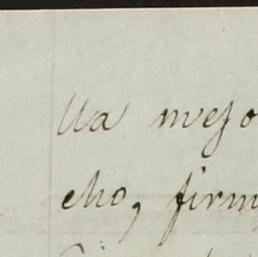 lla mejo
cho, firm